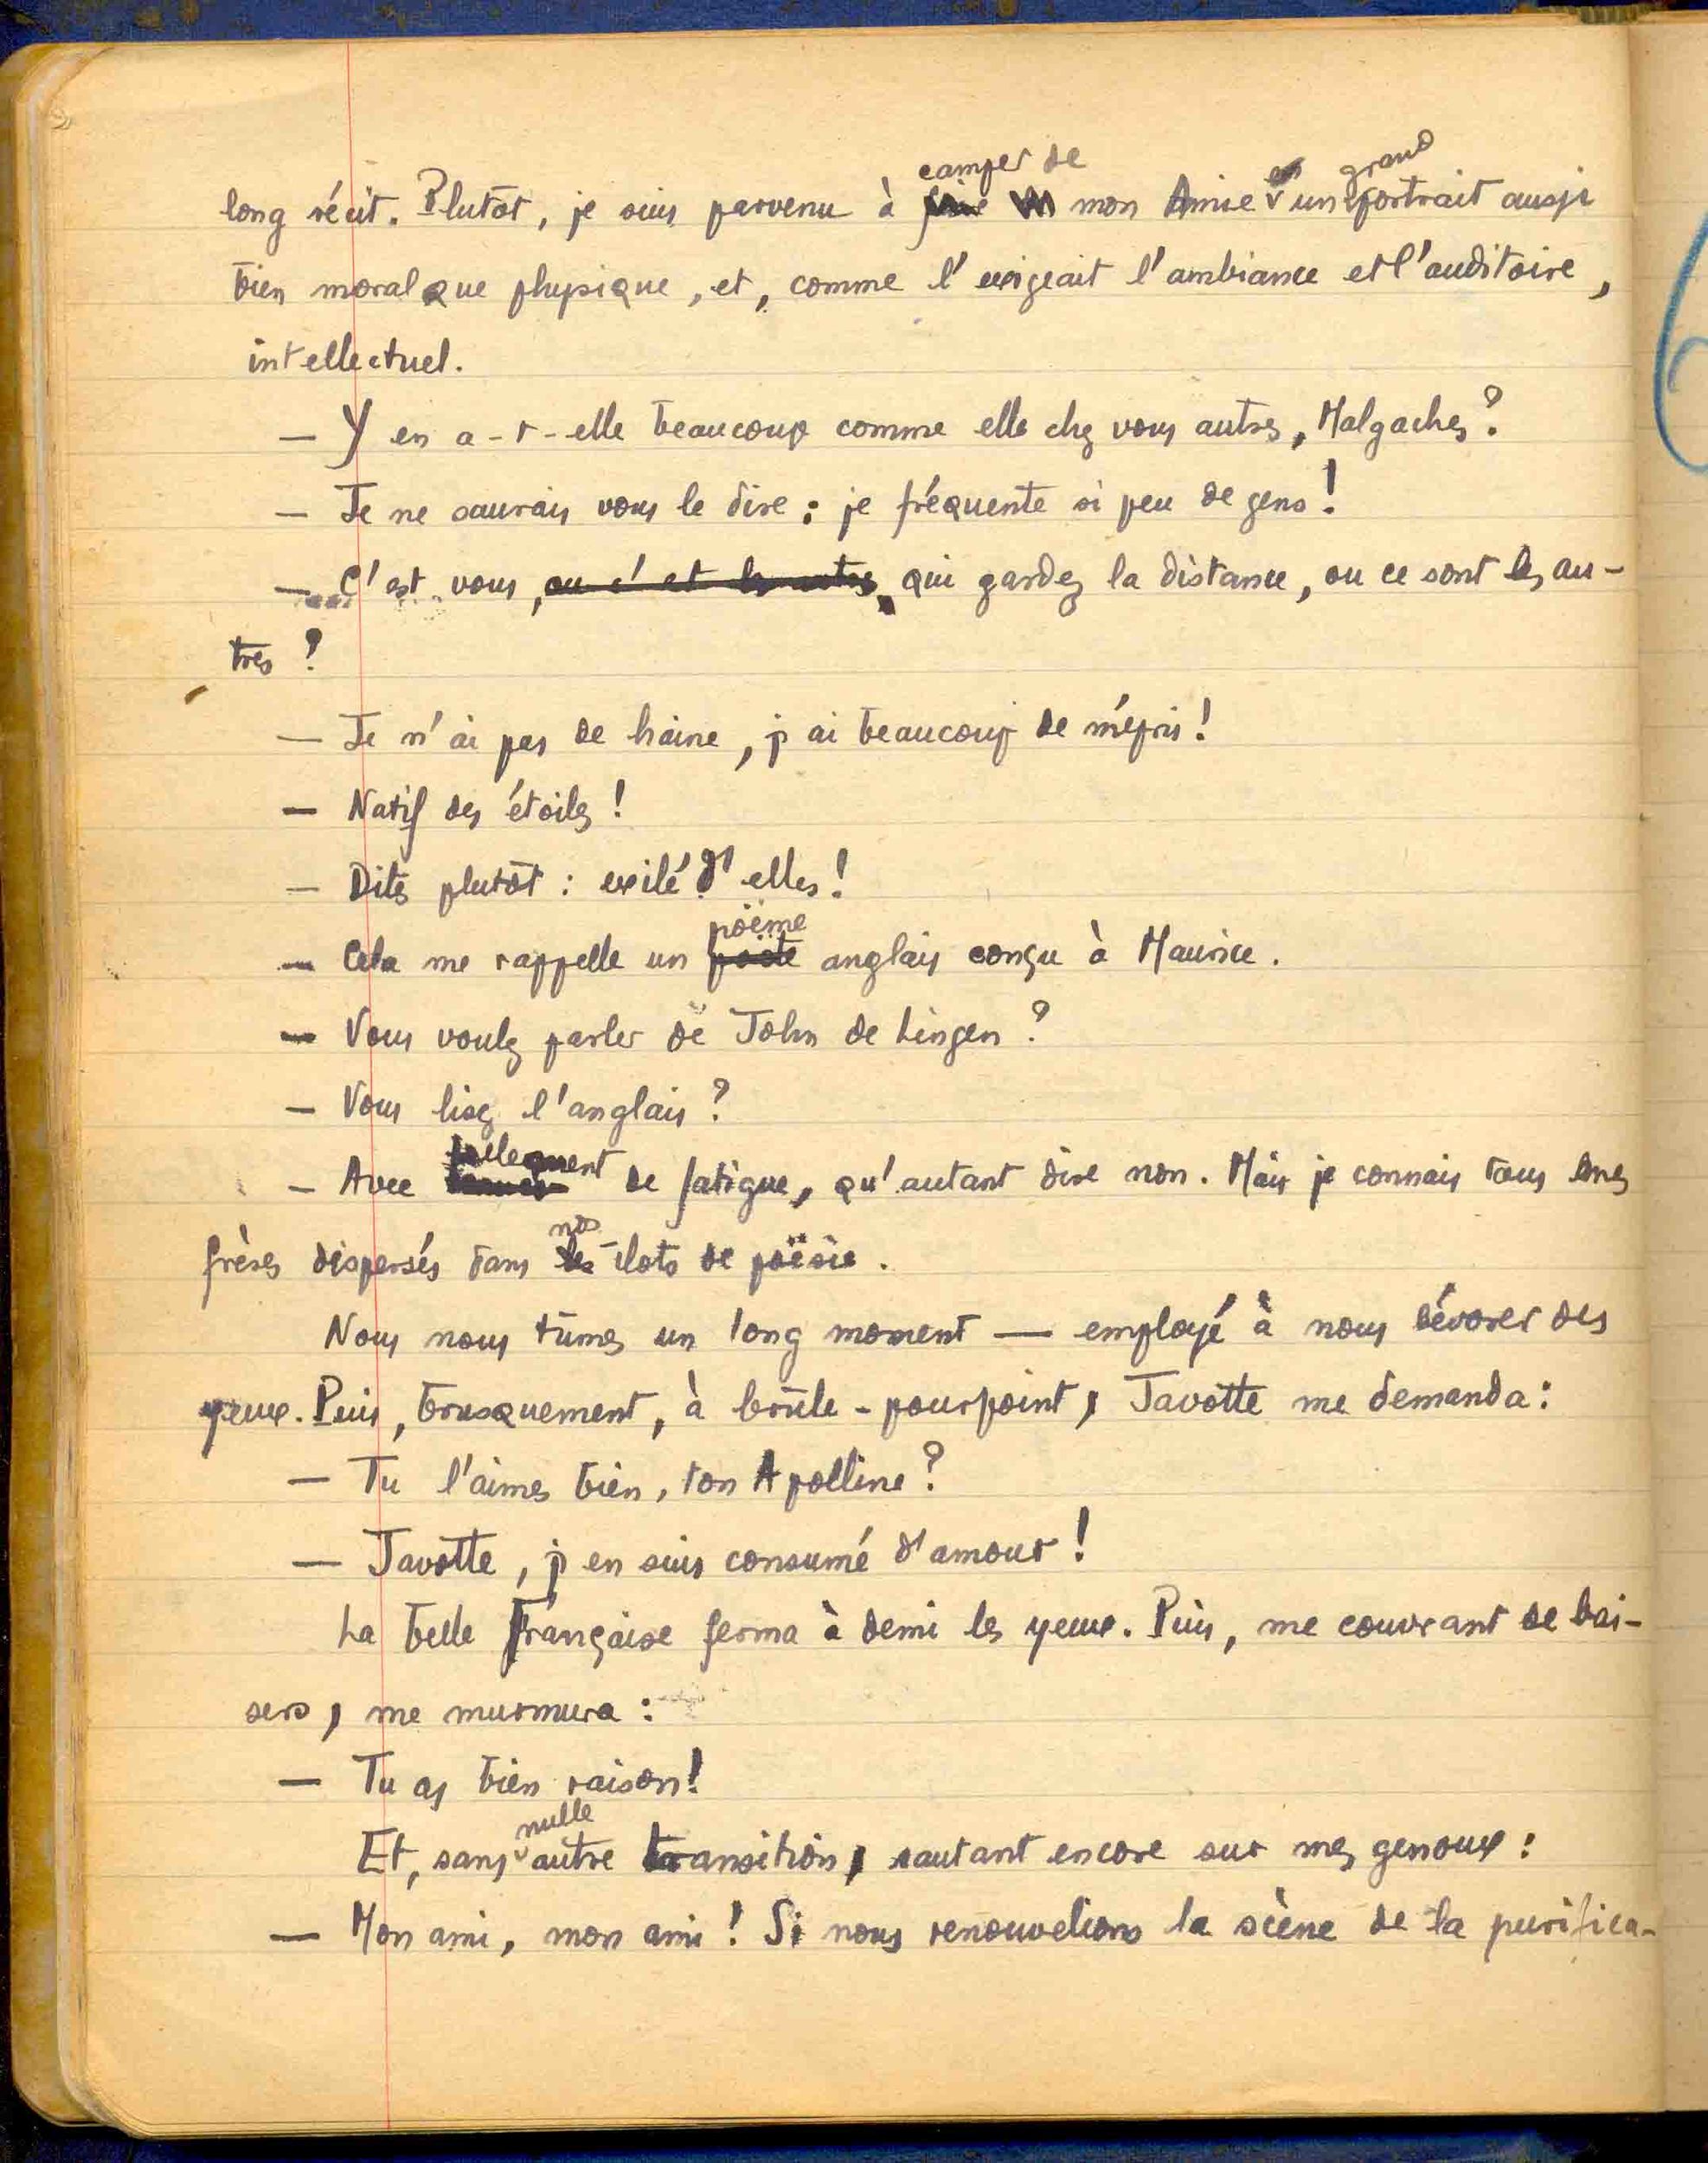 camper de en grand
long récit. Plutôt, je suis parvenu à faire mon Amie un portrait aussi
bien moral que physique, et, comme l'exigeait l'ambiance et l'auditoire,
intellectuel.
— Y en a-t-elle beaucoup comme elle chez vous autres, Malgaches?
— Je ne saurais vous le dire : je fréquente si peu de gens!
— C'est vous, ou c'est les autres, qui gardez la distance, ou ce sont les au-
tres ?
— Je n'ai pas de haine, j'ai beaucoup de mépris!
— Natif des étoiles !
— Dites plutôt : exilé d'elles!
poëme
— Cela me rappelle un poète anglais conçu à Maurice.
— Vous voulez parler de John de Lingen ?
— Vous lisez l'anglais ?
tellement
— Avec de fatigue, qu'autant dire non. Mais je connais tous mes
nos
frères dispersés dans les îlots de poësie.
Nous nous tûmes un long moment — employé à nous dévorer des
yeux. Puis, brusquement, à brûle-pourpoint, Javotte me demanda :
— Tu l'aimes bien, ton Apolline ?
— Javotte, j'en suis consumé d'amour !
La belle Française ferma à demi les yeux. Puis, me couvrant de bai-
sers, me murmura :
— Tu as bien raison!
nulle
Et, sans autre transition, sautant encore sur mes genoux :
— Mon ami, mon ami ! Si nous renouvelions la scène de la purifica-
6